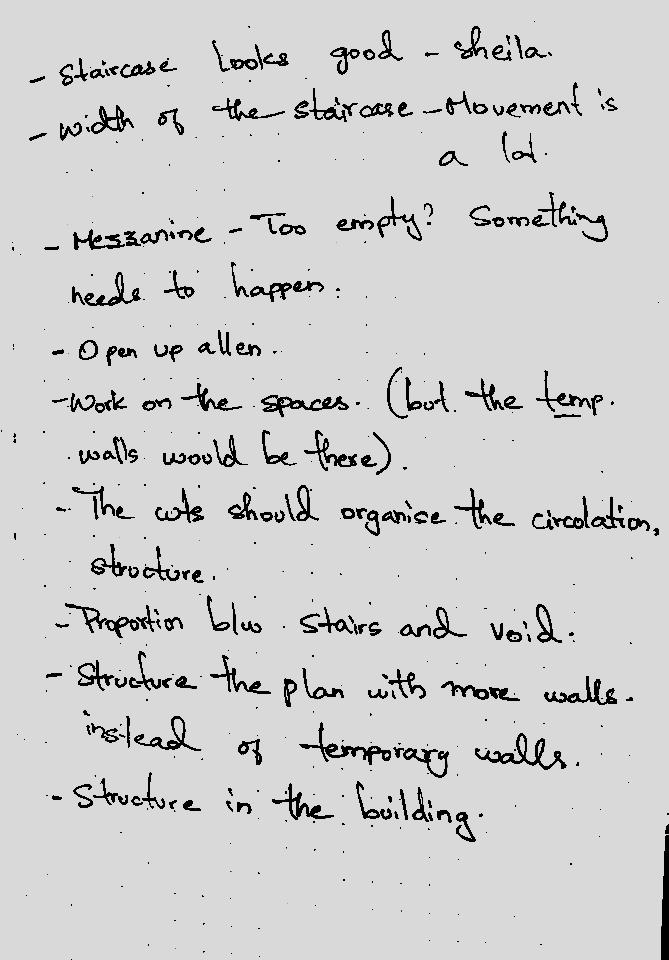 - Staircase looks good - Sheila.
- width of the staircase - Movement is
a lot.
- Mezzanine - Too empty? Something
needs to happen.
- Open up allen.
- Work on the spaces. (but the temp.
walls would be there).
- The cuts should organise the circulation,
structure.
- Proportion b/w stairs and void.
- Structure the plan with more walls.
instead of temporary walls.
- Structure in the building.